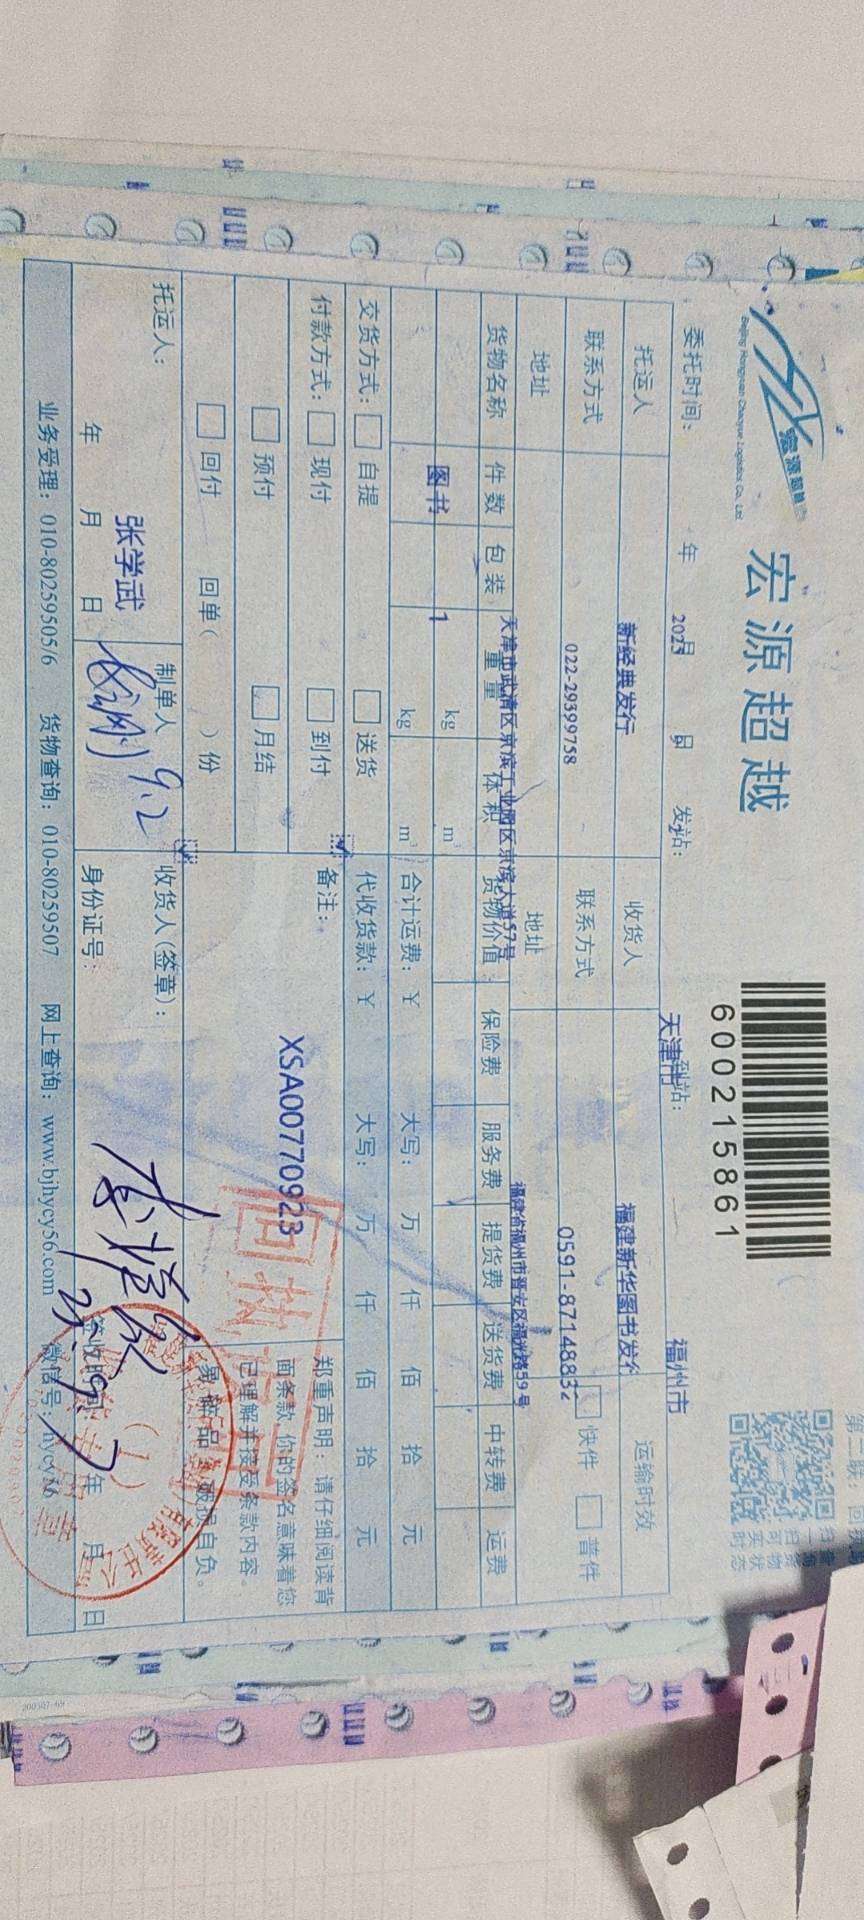 宏源超越
Beijing Hongyuan Chaoyue Logistics Co., Ltd
宏源超越
600215861
委托时间： 年 2023 月 日 发站： 天津市 到站： 福州市
托运人 新经典发行 收货人 福建新华图书发行 运输时效
联系方式 022-29399758 联系方式 0591-87148832 快件 普件
地址 天津市武清区京滨工业园区京滨大道57号 地址 福建省福州市晋安区福光路59号
货物名称 件数 包装 重量 体积 货物价值 保险费 服务费 提货费 送货费 中转费 运费
图书 1 kg m³
kg m³ 合计运费：￥ 大写： 万 仟 佰 拾 元
交货方式： 自提 送货 代收货款：￥ 大写： 万 仟 佰 拾 元
付款方式： 现付 到付 备注：
预付 月结 XSA00770923
回付 回单（ ）份
郑重声明：请仔细阅读背
面条款，你的签名意味着您
已理解并接受条款内容。
易碎品，破损自负。
托运人： 张学武 制单人 9.2 收货人(签章)：
年 月 日 身份证号： 签收时间 年 月 日
业务受理：010-80259505/6 货物查询：010-80259507 网上查询：www.bjhycy56.com 微信号：hycy56